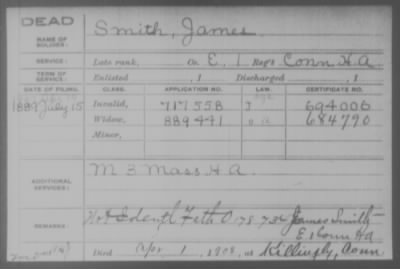 DEAD
NAME OF SOLDIER:
Smith, James.
SERVICE:
Late rank, Co. E, 1 Reg't Conn H. A.
TERM OF SERVICE:
Enlisted , 1 Discharged , 1
DATE OF FILING. CLASS. APPLICATION NO. LAW. CERTIFICATE NO.
1889 July 15 Invalid, 717558 J 694006
Widow, 889441 684790
Minor,
ADDITIONAL SERVICES:
M 3 Mass. H. A.
REMARKS:
Not Identl with O 78.734 James Smith
E 1 Conn HA
Died Apr 1, 1908, at Killingly, Conn